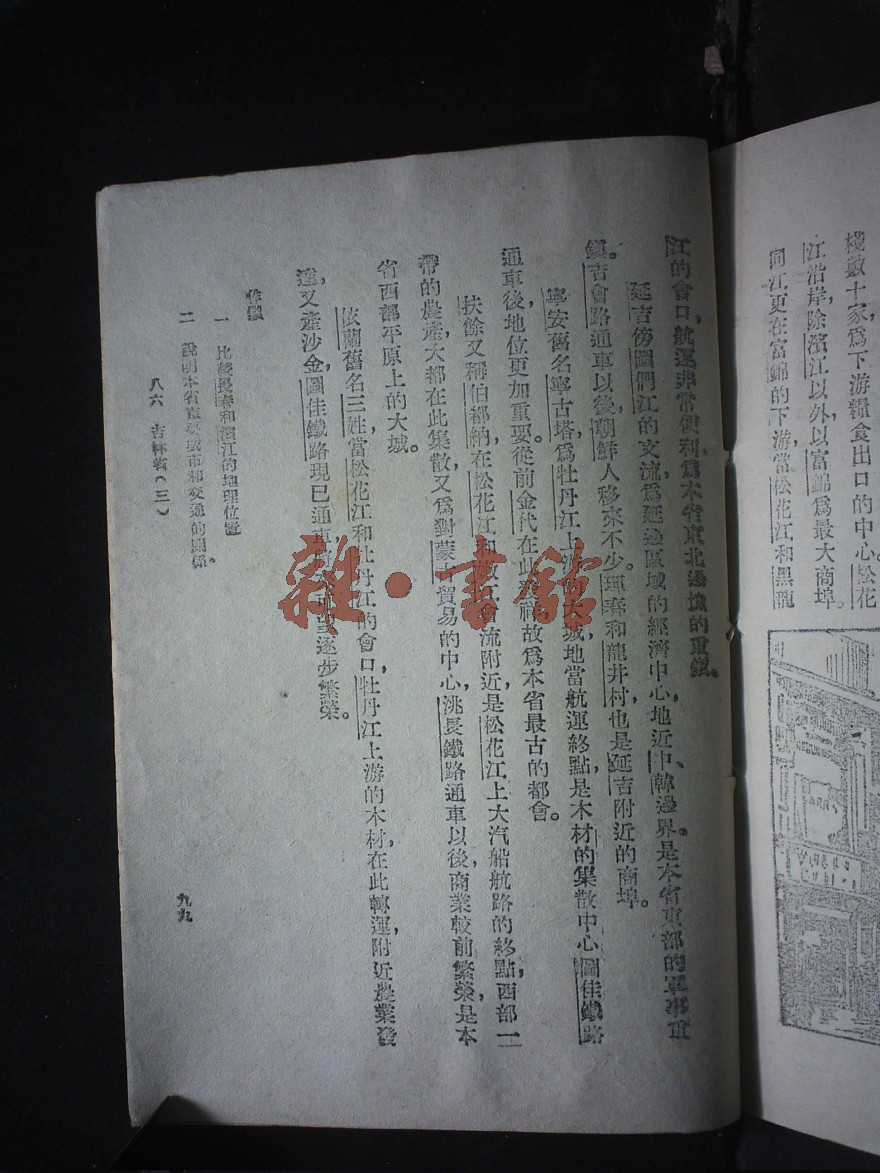 棧數十家爲下游糧食出口的中心。松花
江沿岸除濱江以外以富錦爲最大商埠。
同江更在富錦的下游當松花江和黑龍
江的會口，航運非常便利，爲本省東北邊境的重鎮。
延吉傍圖們江的支流，爲延邊區域的經濟中心，地近中、韓邊界，是本省東部的軍事重
鎮。吉會路通車以後，朝鮮人移來不少。琿春和龍井村，也是延吉附近的商埠。
寧安舊名寧古塔，爲牡丹江上游大城，地當航運終點，是木材的集散中心，圖佳鐵路
通車後，地位更加重要。從前金代在此，故爲本省最古的都會。
扶餘又稱伯都納，在松花江和流附近，是松花江上大汽船航路的終點，西部一
帶的農產，大都在此集散，又爲對蒙古貿易的中心，洮長鐵路通車以後，商業較前繁榮，是本
省西部平原上的大城。
依蘭舊名三姓，當松花江和牡丹江的會口，牡丹江上游的木材，在此轉運，附近農業發
達，又產沙金，圖佳鐵路現已通車，逐步繁榮。
作業
一 比較長春和濱江的地理位置
二 說明本省重要城市和交通的關係。
八六 吉林省（三）
九九
雜·書館